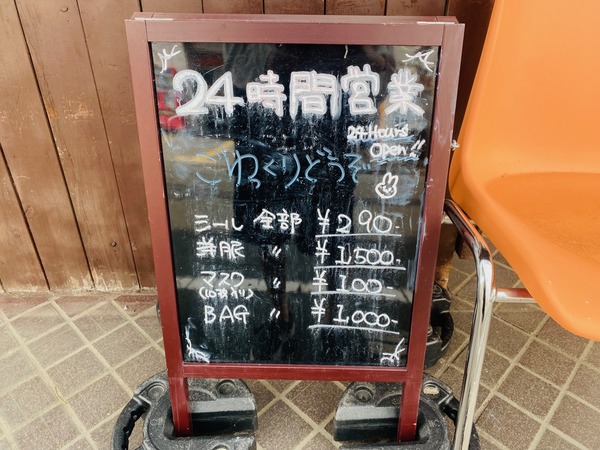 24時間営業
24 Hours
Open!!
ごゆっくりどうぞ
ミール 全部 ¥290-
洋服 〃 ¥1,500-
マスク 〃 ¥100-
BAG 〃 ¥1,000-